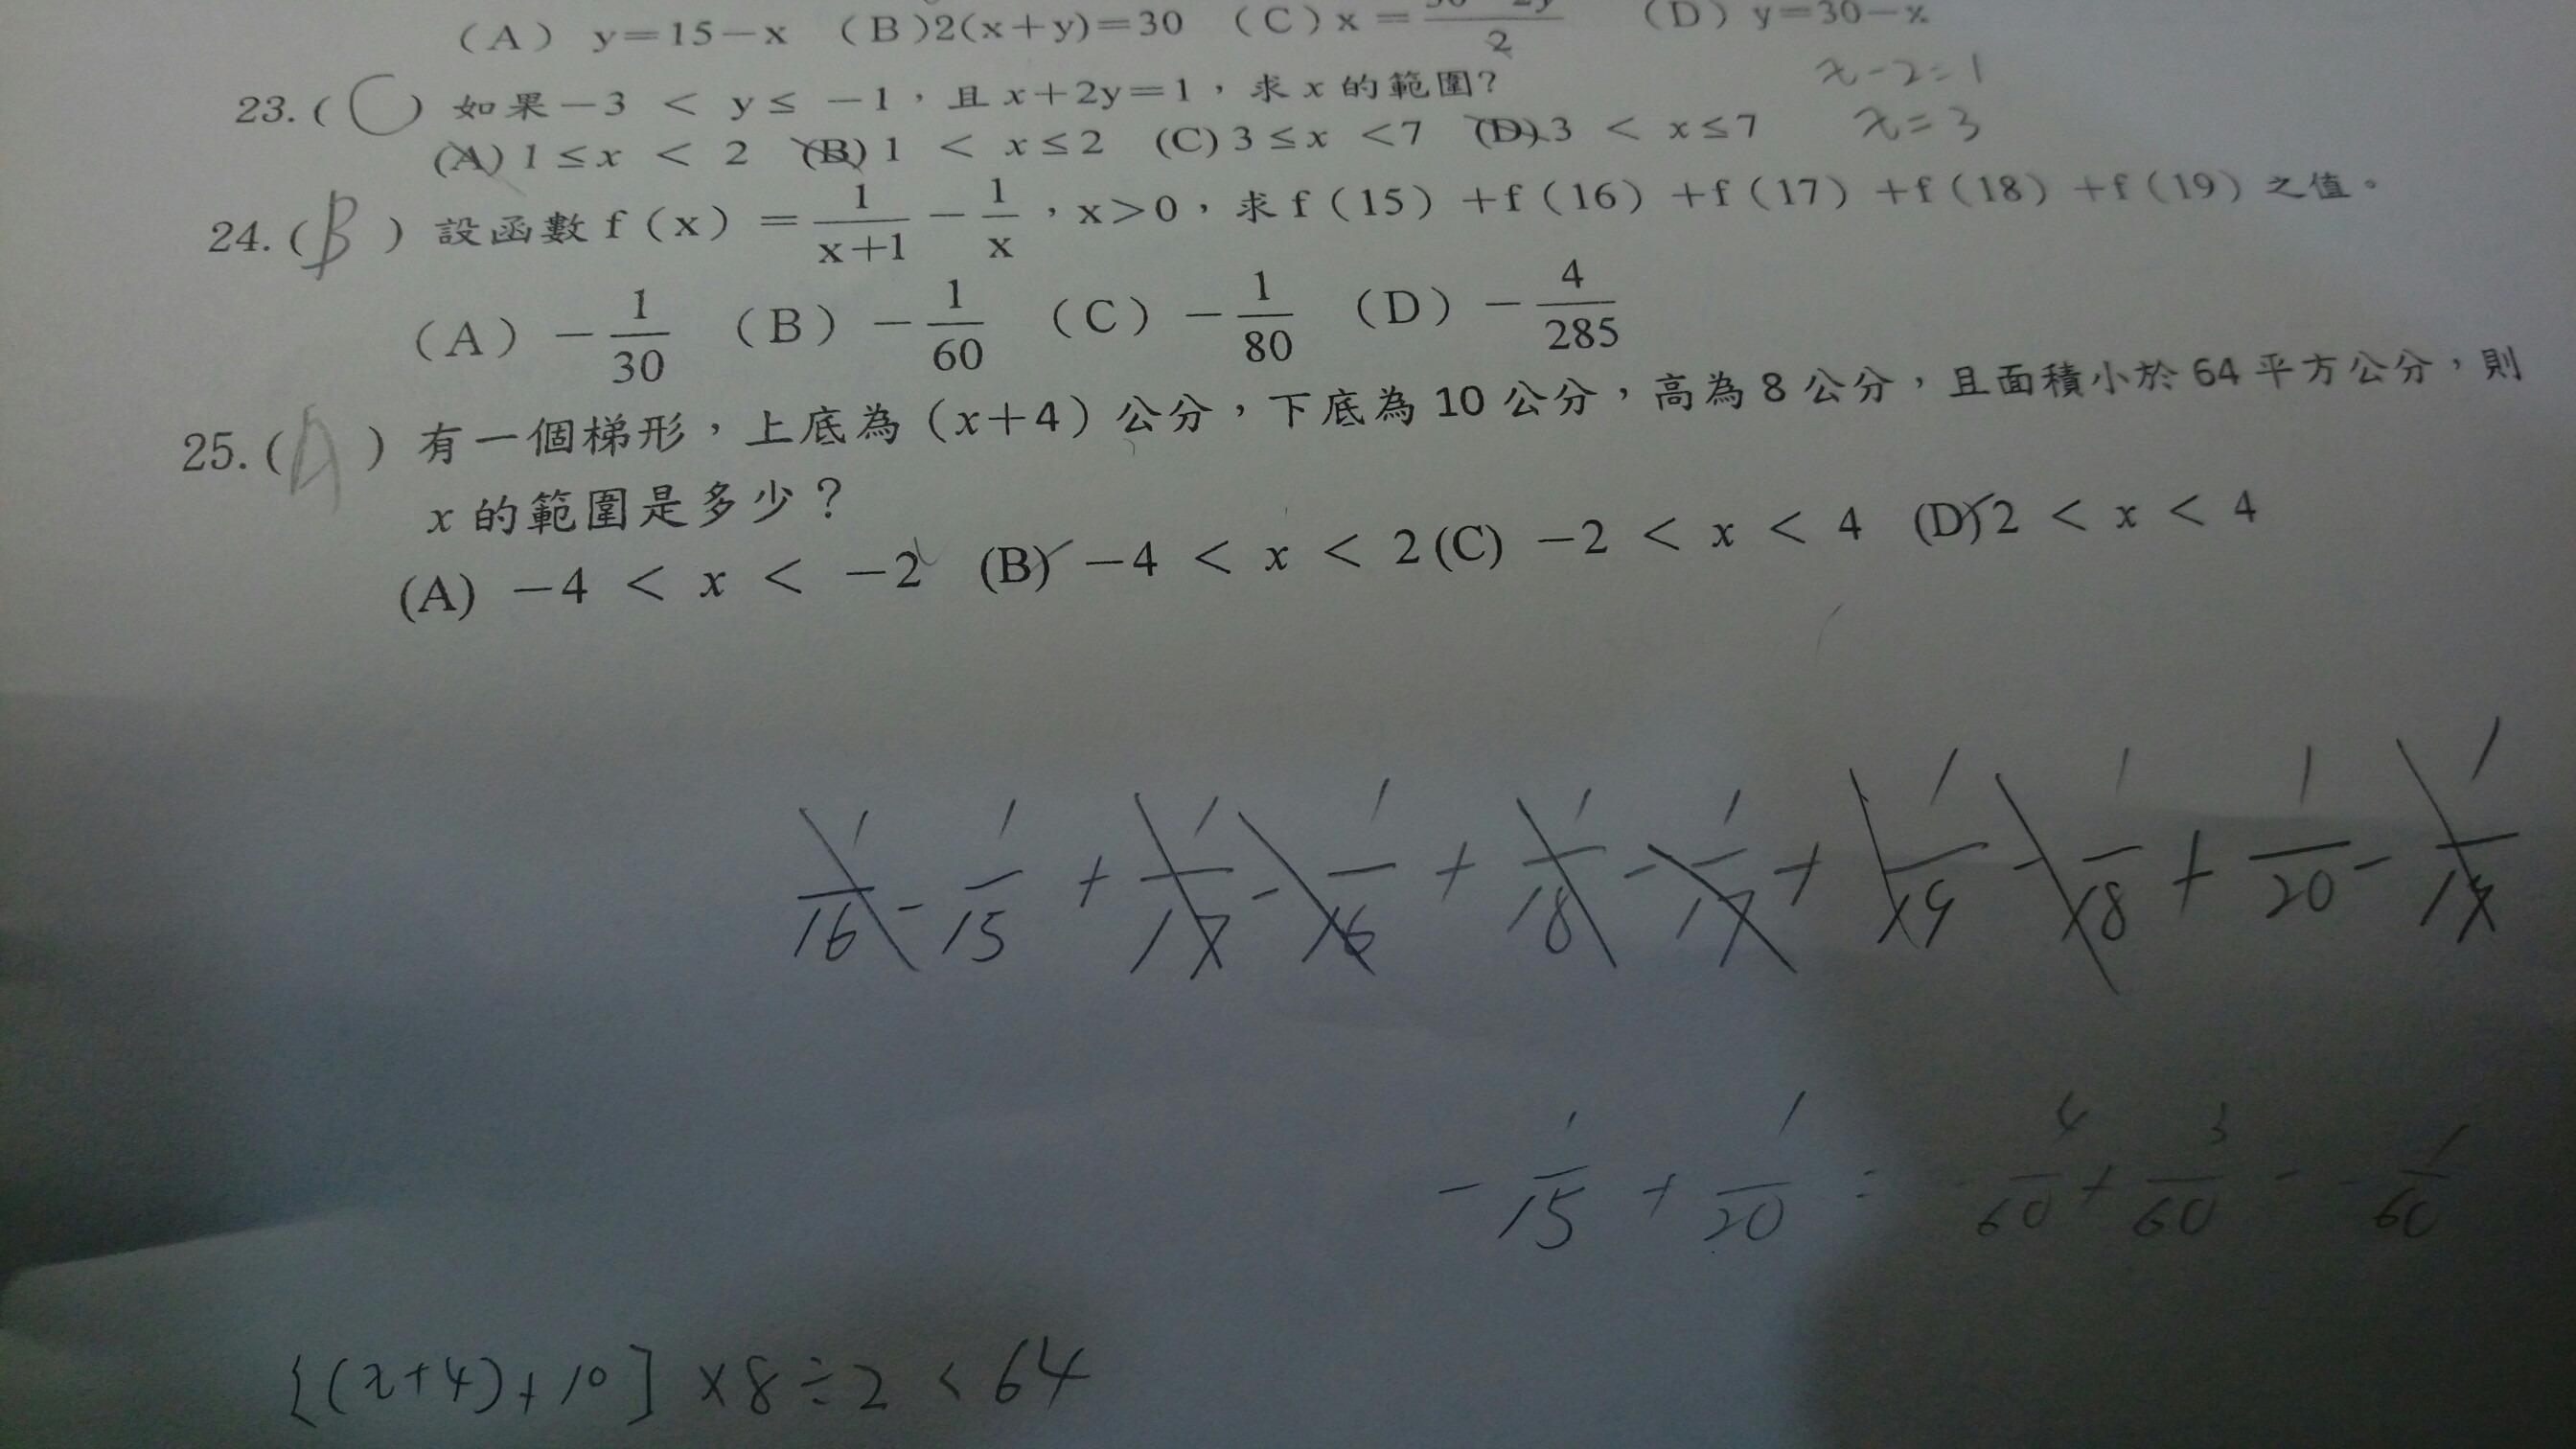 (A) y=15－x (B)2(x+y)=30 (C)x = 30－2y/2 (D) y=30－x
x-2=1
23.( C ) 如果－3 < y ≤ －1，且 x+2y=1，求 x 的範圍?
x=3
(A) 1 ≤ x < 2 (B) 1 < x ≤ 2 (C) 3 ≤ x < 7 (D) 3 < x ≤ 7
24.( B ) 設函數 f（x）= 1/x+1 － 1/x ，x>0，求 f（15）+f（16）+f（17）+f（18）+f（19）之值。
（A）－1/30 （B）－1/60 （C）－1/80 （D）－4/285
25.( A ) 有一個梯形，上底為（x+4）公分，下底為 10 公分，高為 8 公分，且面積小於 64 平方公分，則
x 的範圍是多少？
(A) －4 < x < －2 (B) －4 < x < 2 (C) －2 < x < 4 (D) 2 < x < 4
1/16 - 1/15 + 1/17 - 1/16 + 1/18 - 1/17 + 1/19 - 1/18 + 1/20 - 1/19
- 1/15 + 1/20 = - 4/60 + 3/60 = - 1/60
[(x+4)+10] ×8÷2 < 64